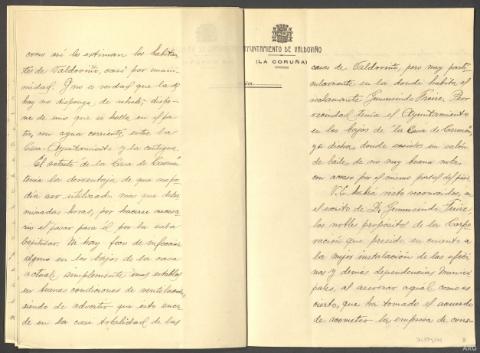 como así lo estiman los habitan-
tes de Valdoviño, casi por unani-
midad. Y no es verdad que la q.
hoy no disponga de retrete; dispo-
ne de uno que se halla en el pa-
tio, con agua corriente, entre la
Casa-Ayuntamiento y la contigua.
El retrete de la Casa de
tenía la desventaja, de que no po-
día ser utilizado más que deter-
minadas horas, por hacerse necesa-
rio el pasar para él por la sala
Capitular. No hay foco de infección
alguno en los bajos de la casa
actual, simplemente unos establos
en buenas condiciones de ventilación,
siendo de advertir que esto suce-
de en la casi totalidad de las
AYUNTAMIENTO DE VALDOVIÑO
(LA CORUÑA)
casas de Valdoviño, pero muy parti-
cularmente en la donde habita el
reclamante Gumersindo Freire. Por
vecindad tenía el Ayuntamiento
en los bajos de la Casa de
ya dicha, donde un salón
de baile de no muy buena nota
con acceso por el mismo portal del piso.
V.E. habrá visto reconocidos, en
el escrito de D. Gumersindo Freire,
los nobles propósitos de la Corpo-
ración que presido en cuanto a
la mejor instalación de las ofici-
nas y demás dependencias munici-
pales, al aseverar aquél como es
cierto, que ha tomado el acuerdo
de acometer la empresa de cons-